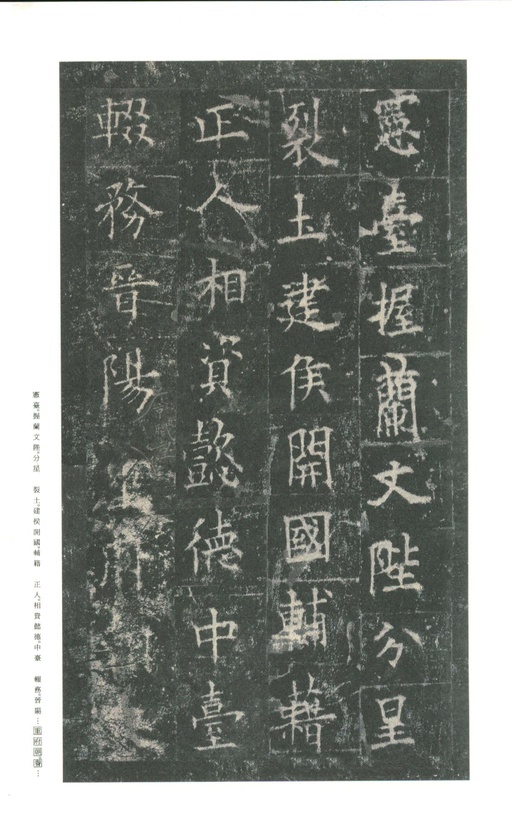 憲臺握蘭文陛分星
裂土建侯開國輔藉
正人相資懿德中臺
輟務晉陽
憲臺。握蘭文陛。分星　裂土。建侯開國。輔藉　正人。相資懿德。中臺　輟務。晉陽…